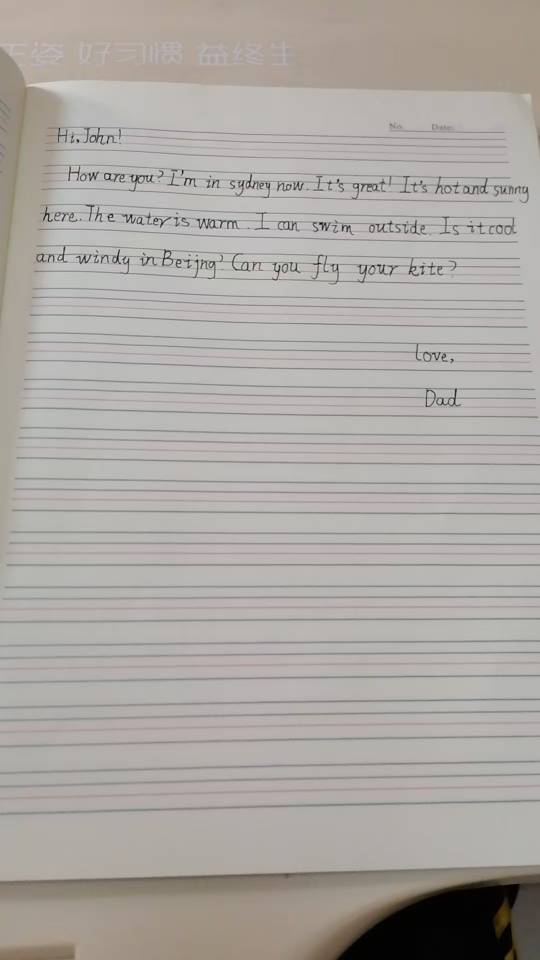 正姿 好习惯 益终生
No. Date:
Hi, John!
How are you? I'm in sydney now. It's great! It's hot and sunny
here. The water is warm. I can swim outside. Is it cool
and windy in Beijng? Can you fly your kite?
love,
Dad